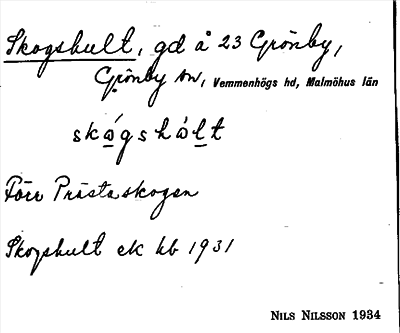 Skogshult, gd å 23 Grönby,
Grönby sn, Vemmenhögs hd, Malmöhus län
skågshålt
Förr Prästaskogen
Skogshult ek kb 1931
NILS NILSSON 1934